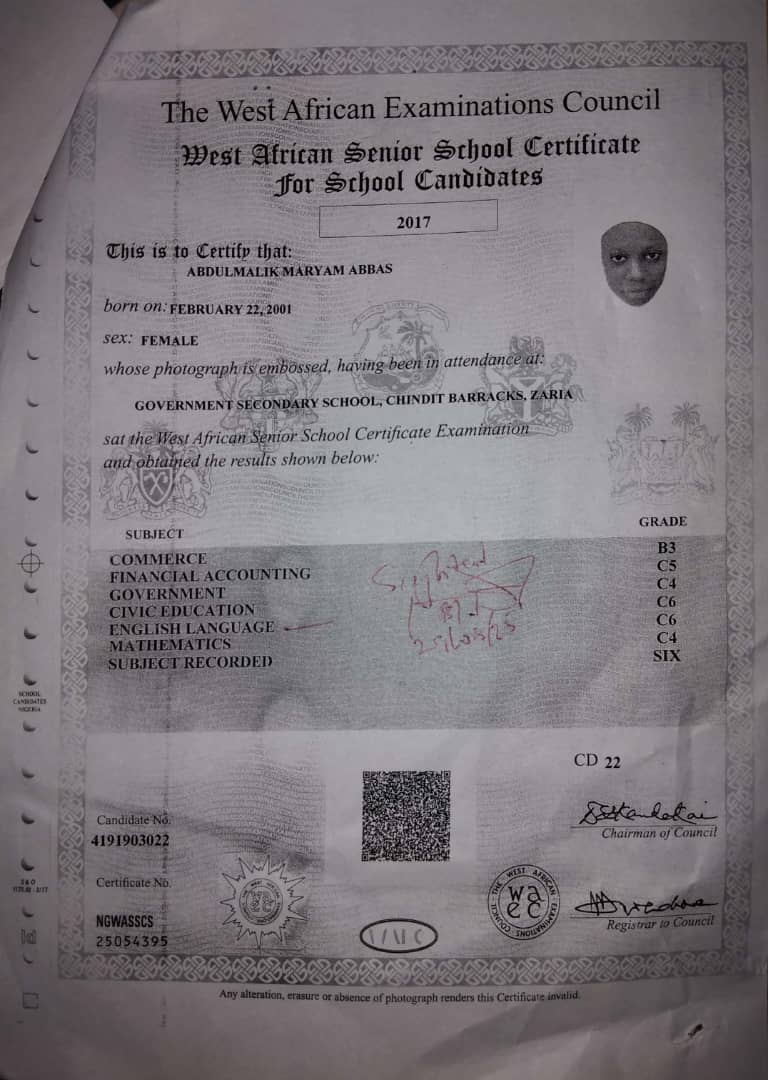 The West African Examinations Council
West African Senior School Certificate
For School Candidates
2017
This is to Certify that:
ABDULMALIK MARYAM ABBAS
born on: FEBRUARY 22, 2001
sex: FEMALE
whose photograph is embossed, having been in attendance at:
GOVERNMENT SECONDARY SCHOOL, CHINDIT BARRACKS, ZARIA
sat the West African Senior School Certificate Examination
and obtained the results shown below:
SUBJECT GRADE
COMMERCE B3
FINANCIAL ACCOUNTING C5
GOVERNMENT C4
CIVIC EDUCATION C6
ENGLISH LANGUAGE C6
MATHEMATICS C4
SUBJECT RECORDED SIX
Sighted
SCHOOL
CANDIDATES
NIGERIA
CD 22
Candidate No.
4191903022
Chairman of Council
Certificate No.
NGWASSCS
25054395
THE WEST AFRICAN EXAMINATIONS COUNCIL
waec
Registrar to Council
Any alteration, erasure or absence of photograph renders this Certificate invalid.